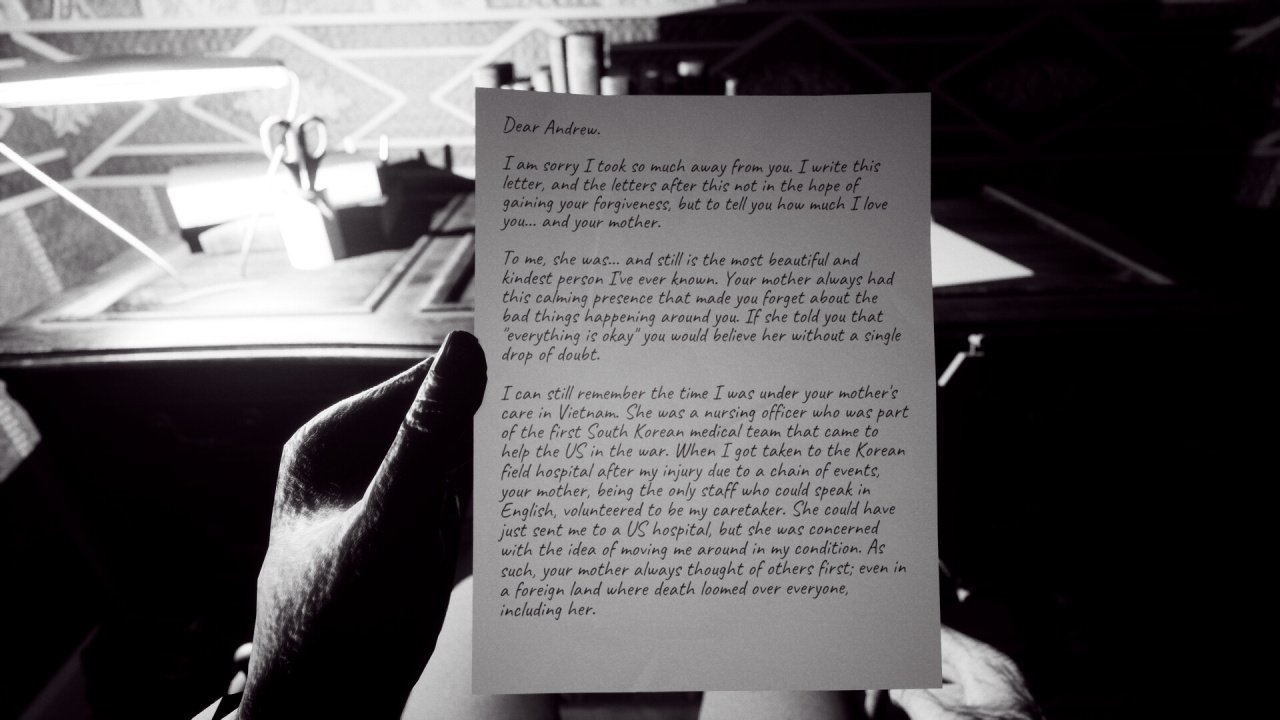 Dear Andrew.
I am sorry I took so much away from you. I write this
letter, and the letters after this not in the hope of
gaining your forgiveness, but to tell you how much I love
you... and your mother.
To me, she was... and still is the most beautiful and
kindest person I've ever known. Your mother always had
this calming presence that made you forget about the
bad things happening around you. If she told you that
"everything is okay" you would believe her without a single
drop of doubt.
I can still remember the time I was under your mother's
care in Vietnam. She was a nursing officer who was part
of the first South Korean medical team that came to
help the US in the war. When I got taken to the Korean
field hospital after my injury due to a chain of events,
your mother, being the only staff who could speak in
English, volunteered to be my caretaker. She could have
just sent me to a US hospital, but she was concerned
with the idea of moving me around in my condition. As
such, your mother always thought of others first; even in
a foreign land where death loomed over everyone,
including her.